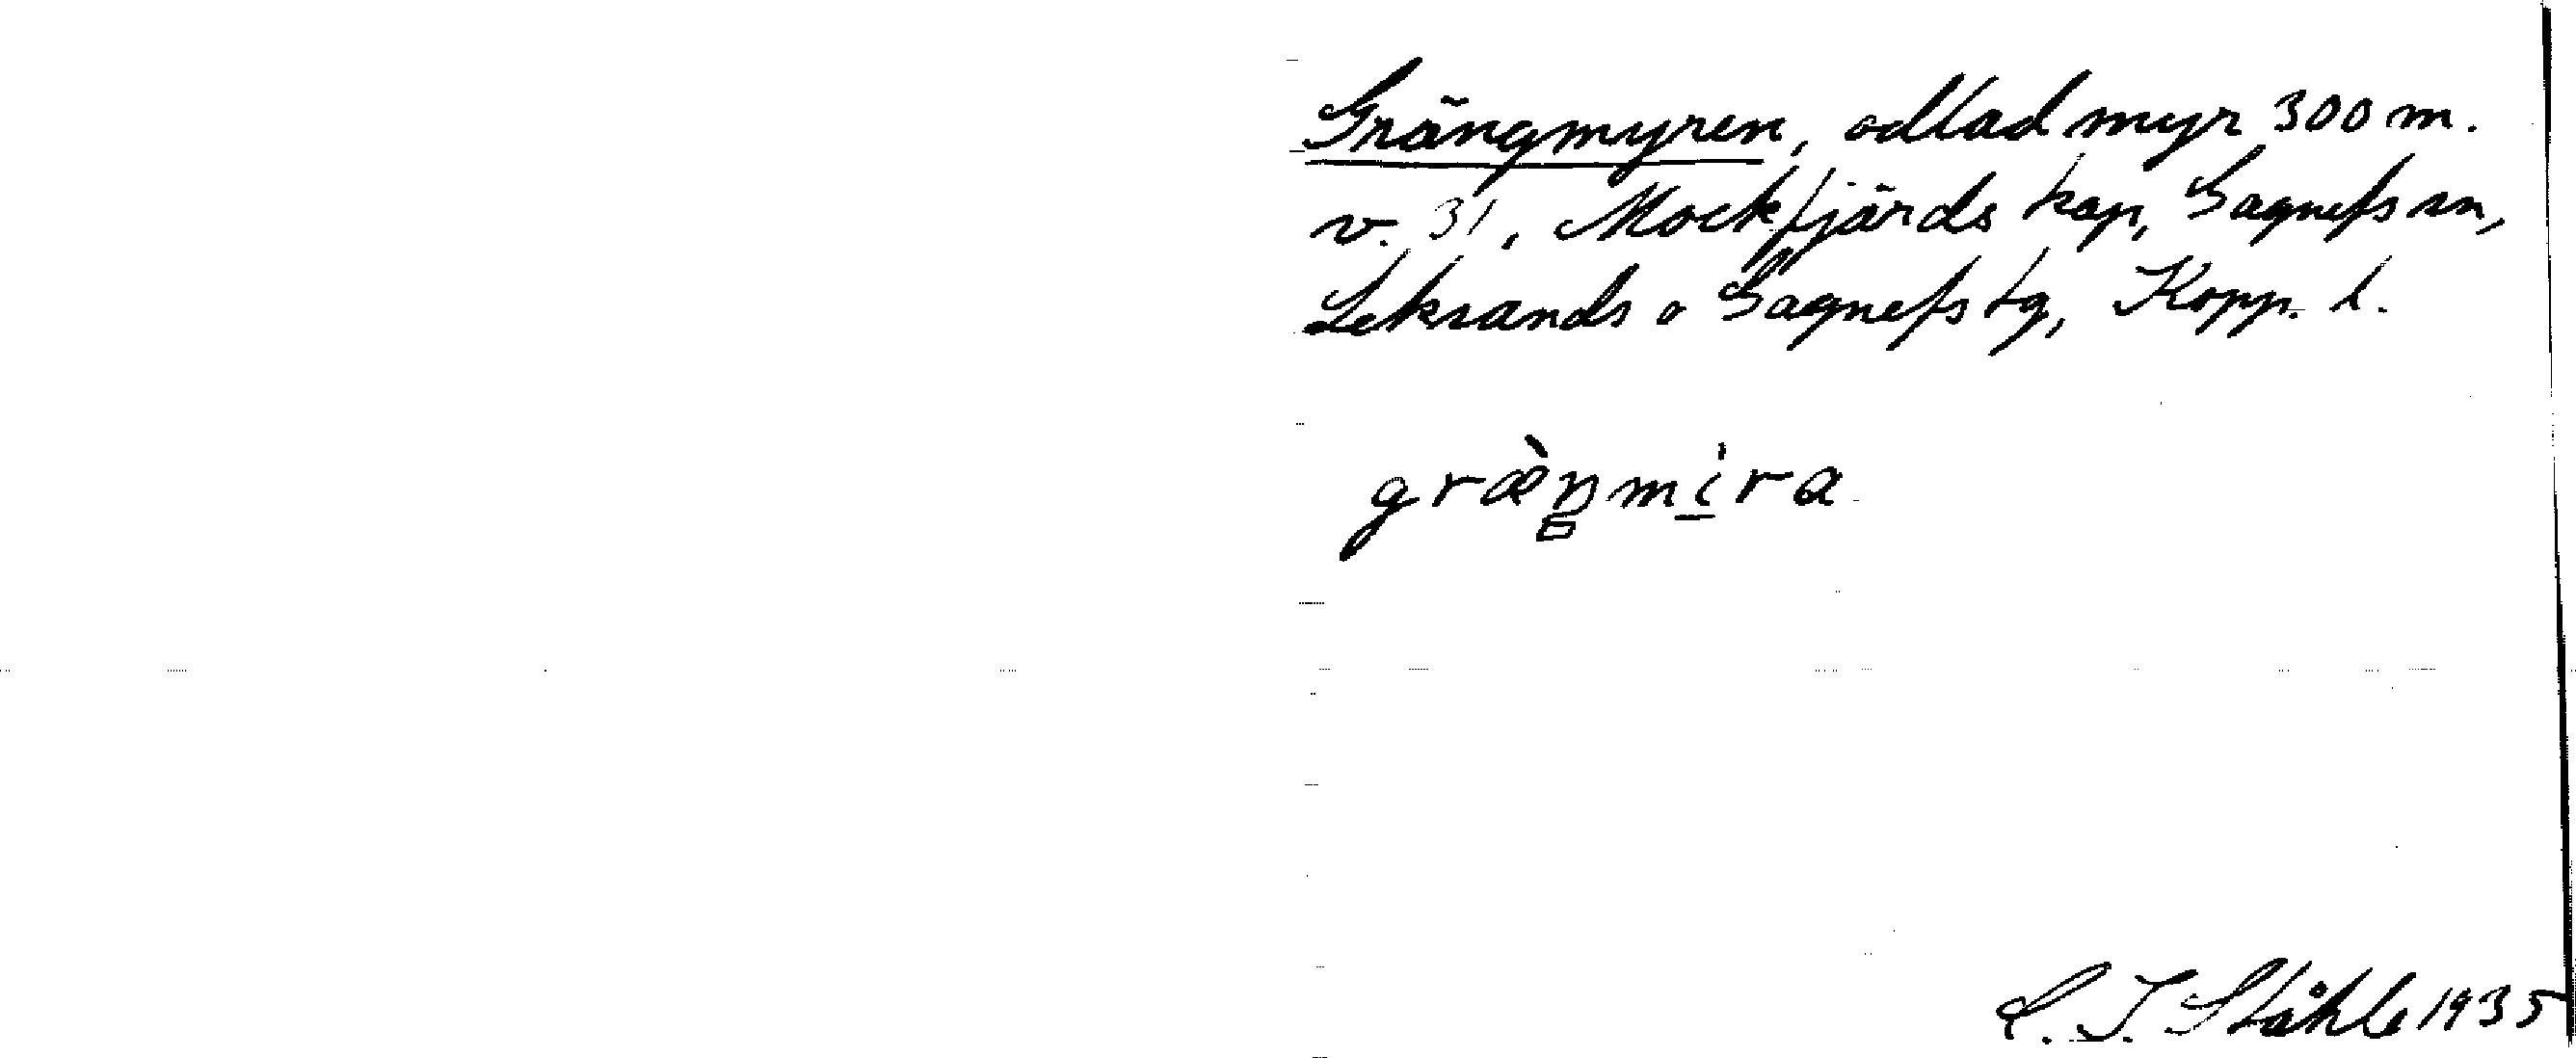 Grängmyren, odlad myr 300 m.
v. 31, Mockfjärds kap, Gagnefs sn,
Leksands o Gagnefs tg, Kopp. l.
græ̀ŋmira
C. I. Ståhle 1935